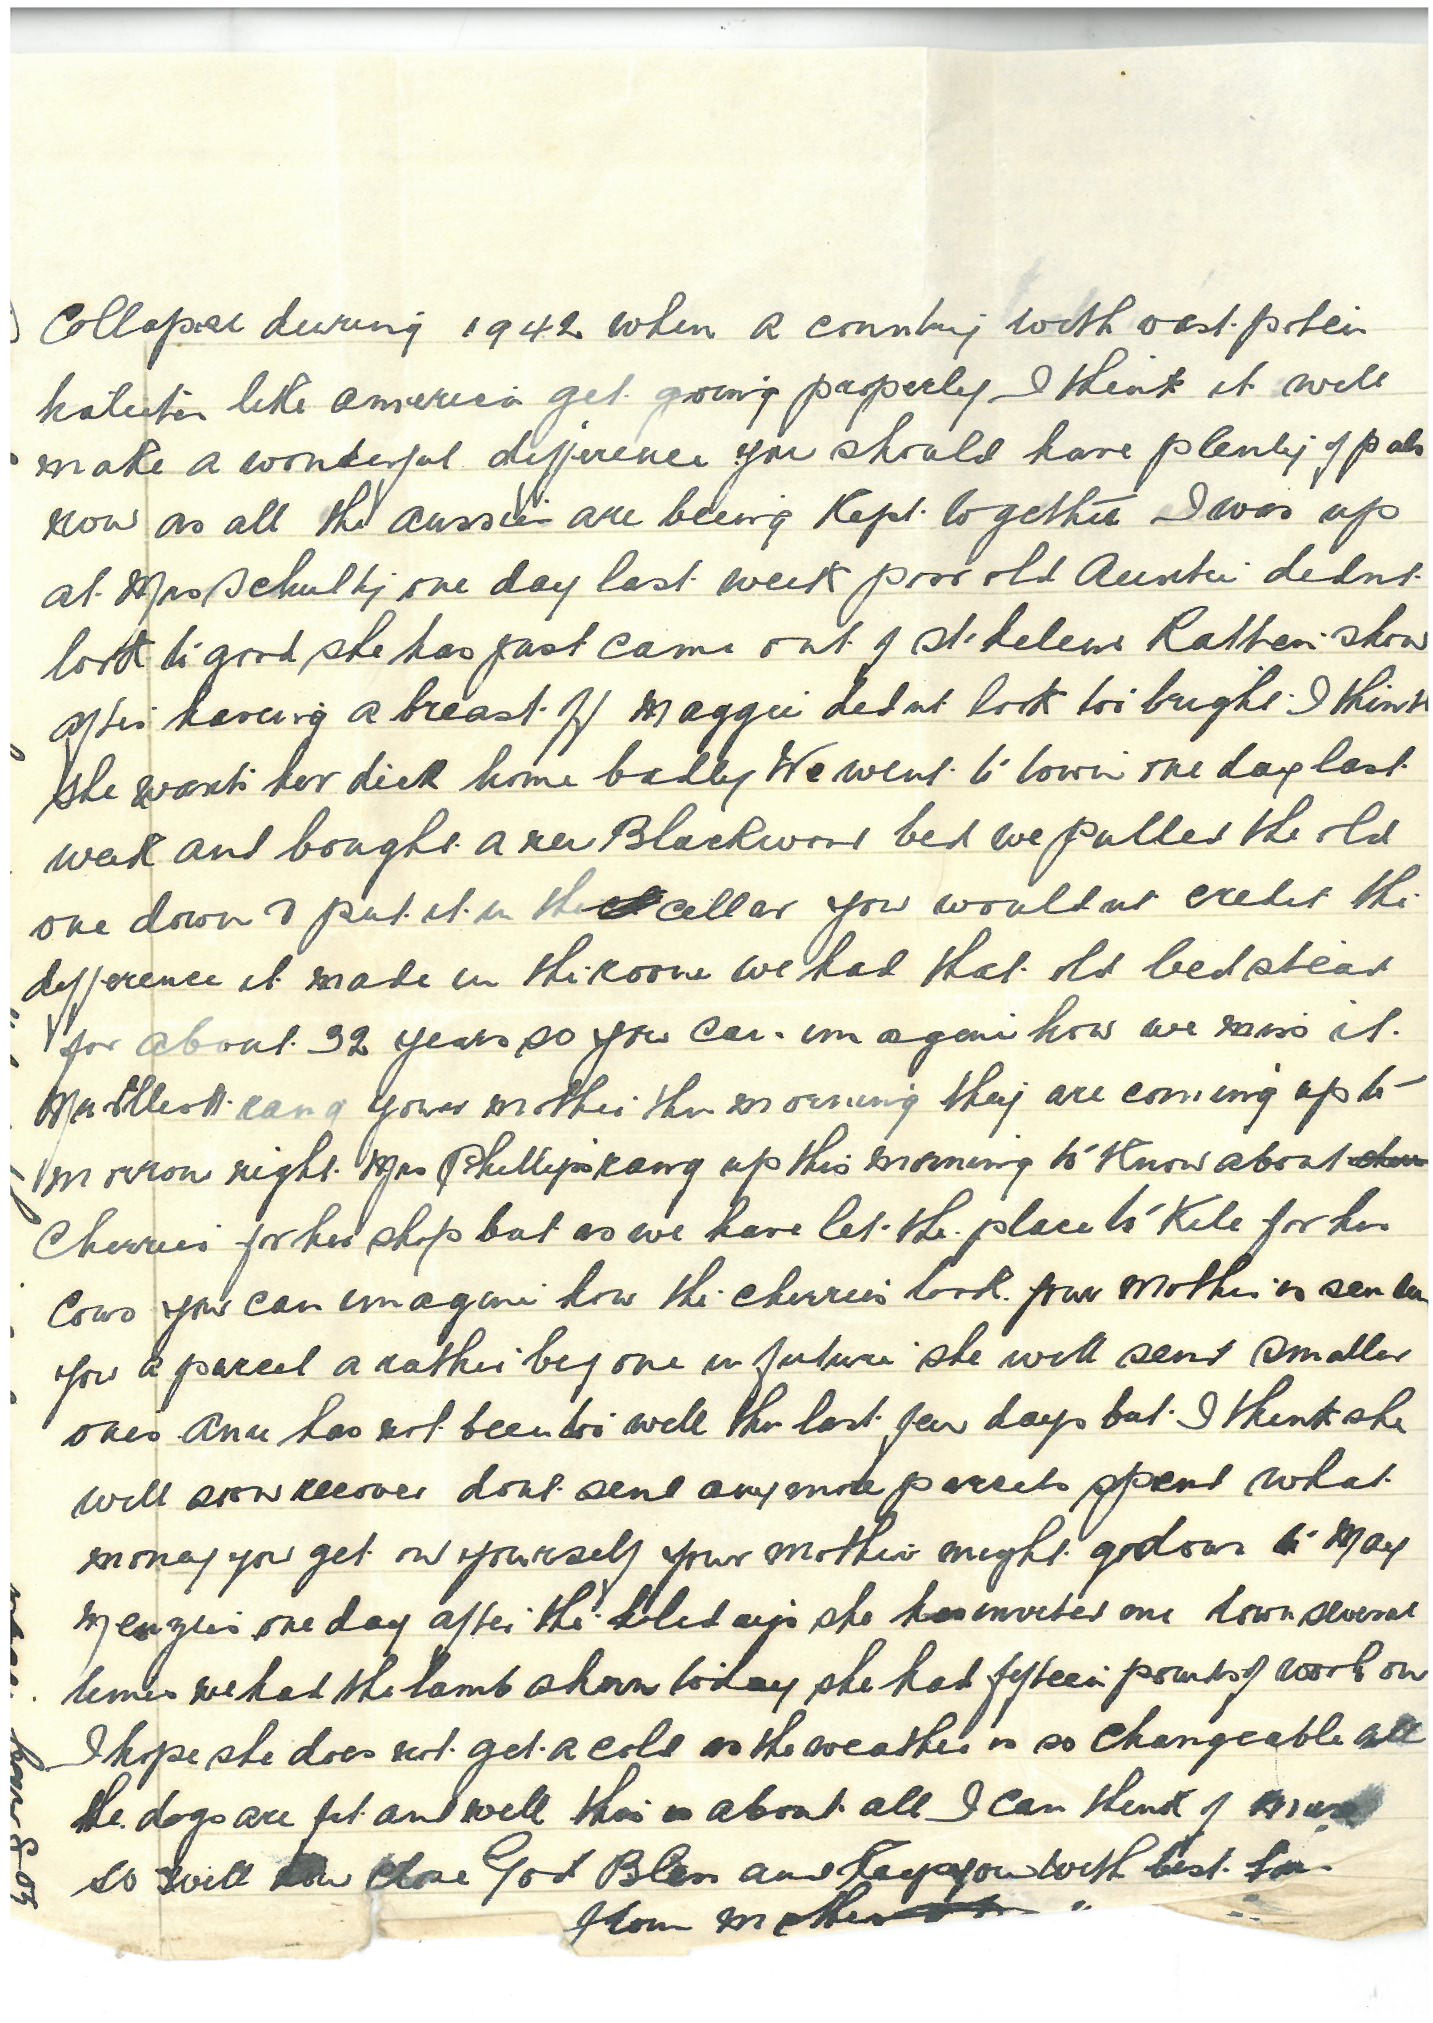 Collapse during 1942 when a country with vast poten
like america get going properly I think it will
make a wonderful difference you should have plenty of pals
now as all the aussies are being Kept together I was up
at Mrs Schultz one day last week poor old Auntie didnt
look to good she has just came out of st helens show
after having a breast off Maggie didnt look too bright I think
she wants her dick home badly We went to town one day last
week and bought a new Blackwood bed we pulled the old
one down & put it in the cellar you wouldnt credit the
difference it made in the room we had that old bedstead
for about 32 years so you can imagine how we miss it
rang your mother this morning they are coming up to
morrow night Mrs Phillips rang up this morning to Know about
Cherries for her shop but as we have let the place to Kile for his
Cows you can imagine how the cherries look your Mother is senden
you a parcel a rather big one in future she will send smaller
ones Anne has not been too well the last few days but I think she
will soon recover dont send anymore parcels spend what
money you get on yourself your mother might go down to May
Menzies one day after the holidays she has invited me down several
times we had the lamb shorn today she had fifteen pounds of wool on
I hope she does not get a cold as the weather is so changeable all
the dogs are fit and well this is about all I can think of
so will now close God Bless and Keep you with best
from mother